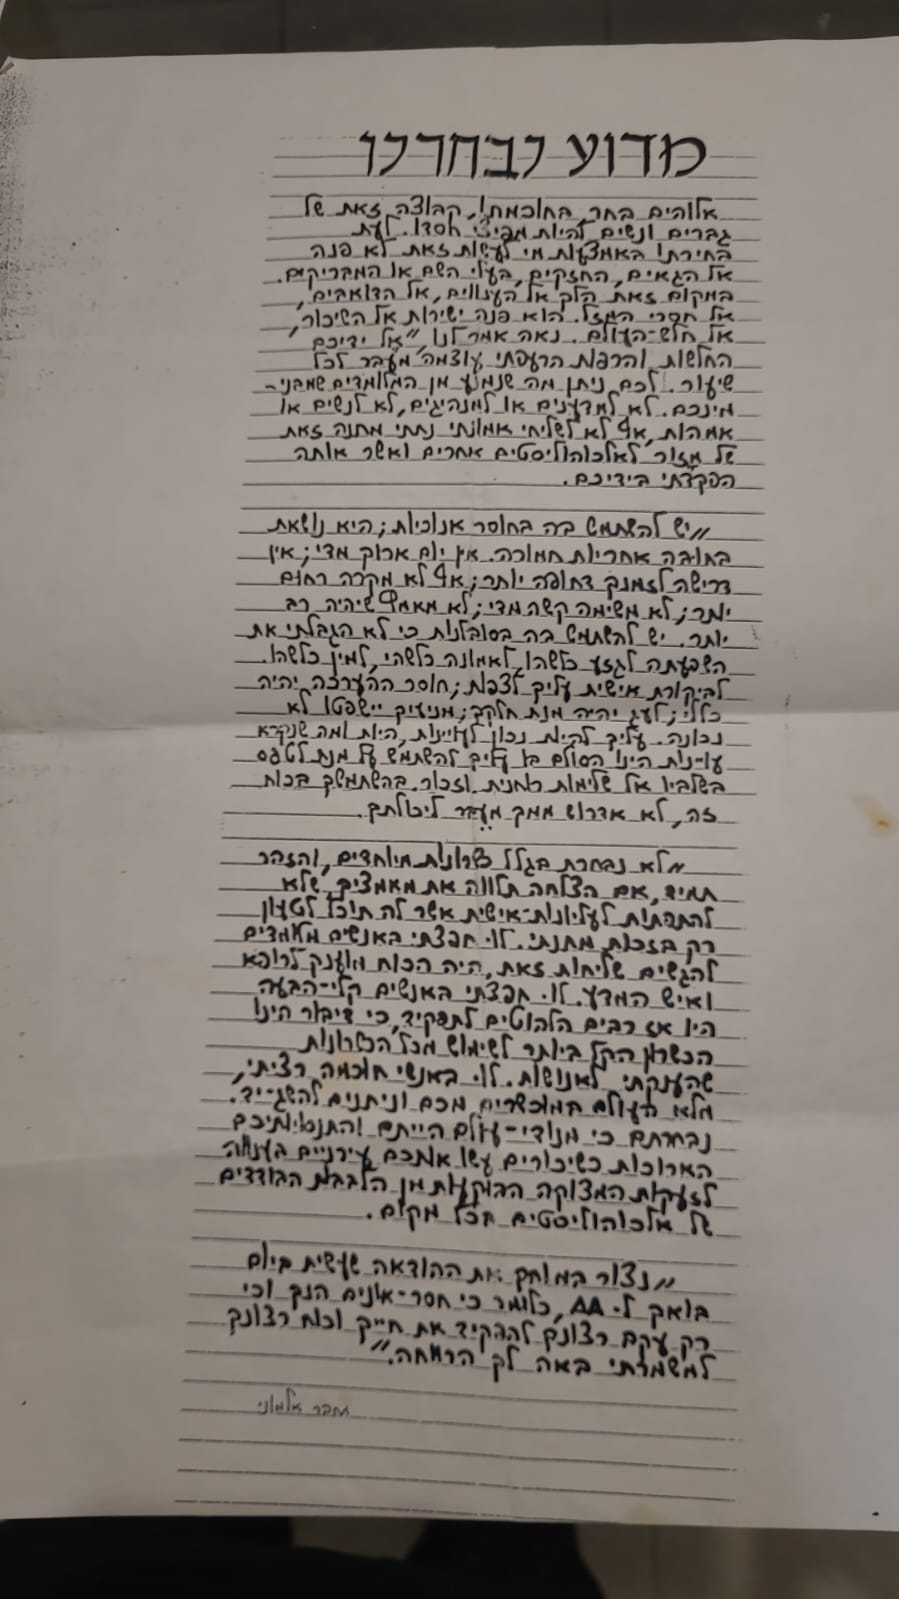 מדוע נבחרנו
אלוהים בחר, בחוכמתו, קבוצה זאת של
גברים ונשים להיות מפיצי חסדו. לעת
בחירתו באמצעות מי לעשות זאת לא פנה
אל הגאים, החזקים, בעלי השם או המבריקים.
במקום זאת הלך אל הענווים, אל הדואבים,
אל חסרי המזל. הוא פנה ישירות אל השיכור,
אל חלש-העולם. נאה אמר לנו, "אל ידיכם
החלשות והרפות הרעפתי עוצמה מעבר לכל
שיעור. לכם ניתן מה שנמנע מן המלומדים שמבני-
מינכם. לא למדענים או למנהיגים, לא לנשים או
אמהות, אף לא לשליחי אמונתי נתתי מתנה זאת
של מזור לאלכוהוליסטים אחרים ואשר אותה
הפקדתי בידיכם.
"יש להשתמש בה בחוסר אנוכיות; היא נושאת
בחובה אחריות חמורה. אין יום ארוך מדי; אין
דרישה לזמנך דחופה יותר; אף לא מקרה רחום
יותר; לא משימה קשה מדי; לא מאמץ שיהיה רב
יותר. יש להשתמש בה בסובלנות כי לא הגבלתי את
השפעתה לגזע כלשהו, לאמונה כלשהי, למין כלשהו.
לביקורת אישית עליך לצפות; חוסר ההערכה יהיה
כללי; לעג יהיה מנת חלקך; מניעיך יישפטו לא
נכונה. עליך להיות נכון לעויינות, היות ומה שנקרא
עויינות הינו הסולם בו עליך להשתמש על מנת לטפס
בשלביו אל שלימות רוחנית. וזכור, בהשתמשך בכוח
זה, לא אדרוש ממך מעבר ליכולתך.
"לא נבחרת בגלל כשרונות מיוחדים, והזהר
תמיד, אם הצלחה תלווה את מאמציך, שלא
להתפתות לעליונות-אישית אשר לה תוכל לטעון
רק בזכות מתנתי. לו חפצתי באנשים מלומדים
להגשים שליחות זאת, היה הכוח מוענק לרופא
ואיש המדע. לו חפצתי באנשים קלי-הבעה
היו אז רבים הלהוטים לתפקיד, כי דיבור הינו
הכשרון הקל ביותר לשימוש מכל הכשרונות
שהענקתי לאנושות. לו באנשי חוכמה רציתי,
מלא העולם המוכשרים מכם וניתנים להשג-יד.
נבחרתם כי מנודי-עולם הייתם והתנסויותיכם
הארוכות כשיכורים עשו אתכם עירניים בענווה
לזעקות המצוקה הבוקעות מן הלבבות הבודדים
של אלכוהוליסטים בכל מקום.
"נצור במוחך את ההודאה שעשית ביום
בואך ל- AA, כלומר כי חסר-אונים הנך וכי
רק עקב רצונך להפקיד את חייך וכוח רצונך
למשמרתי באה לך הרווחה."
חבר אלמוני